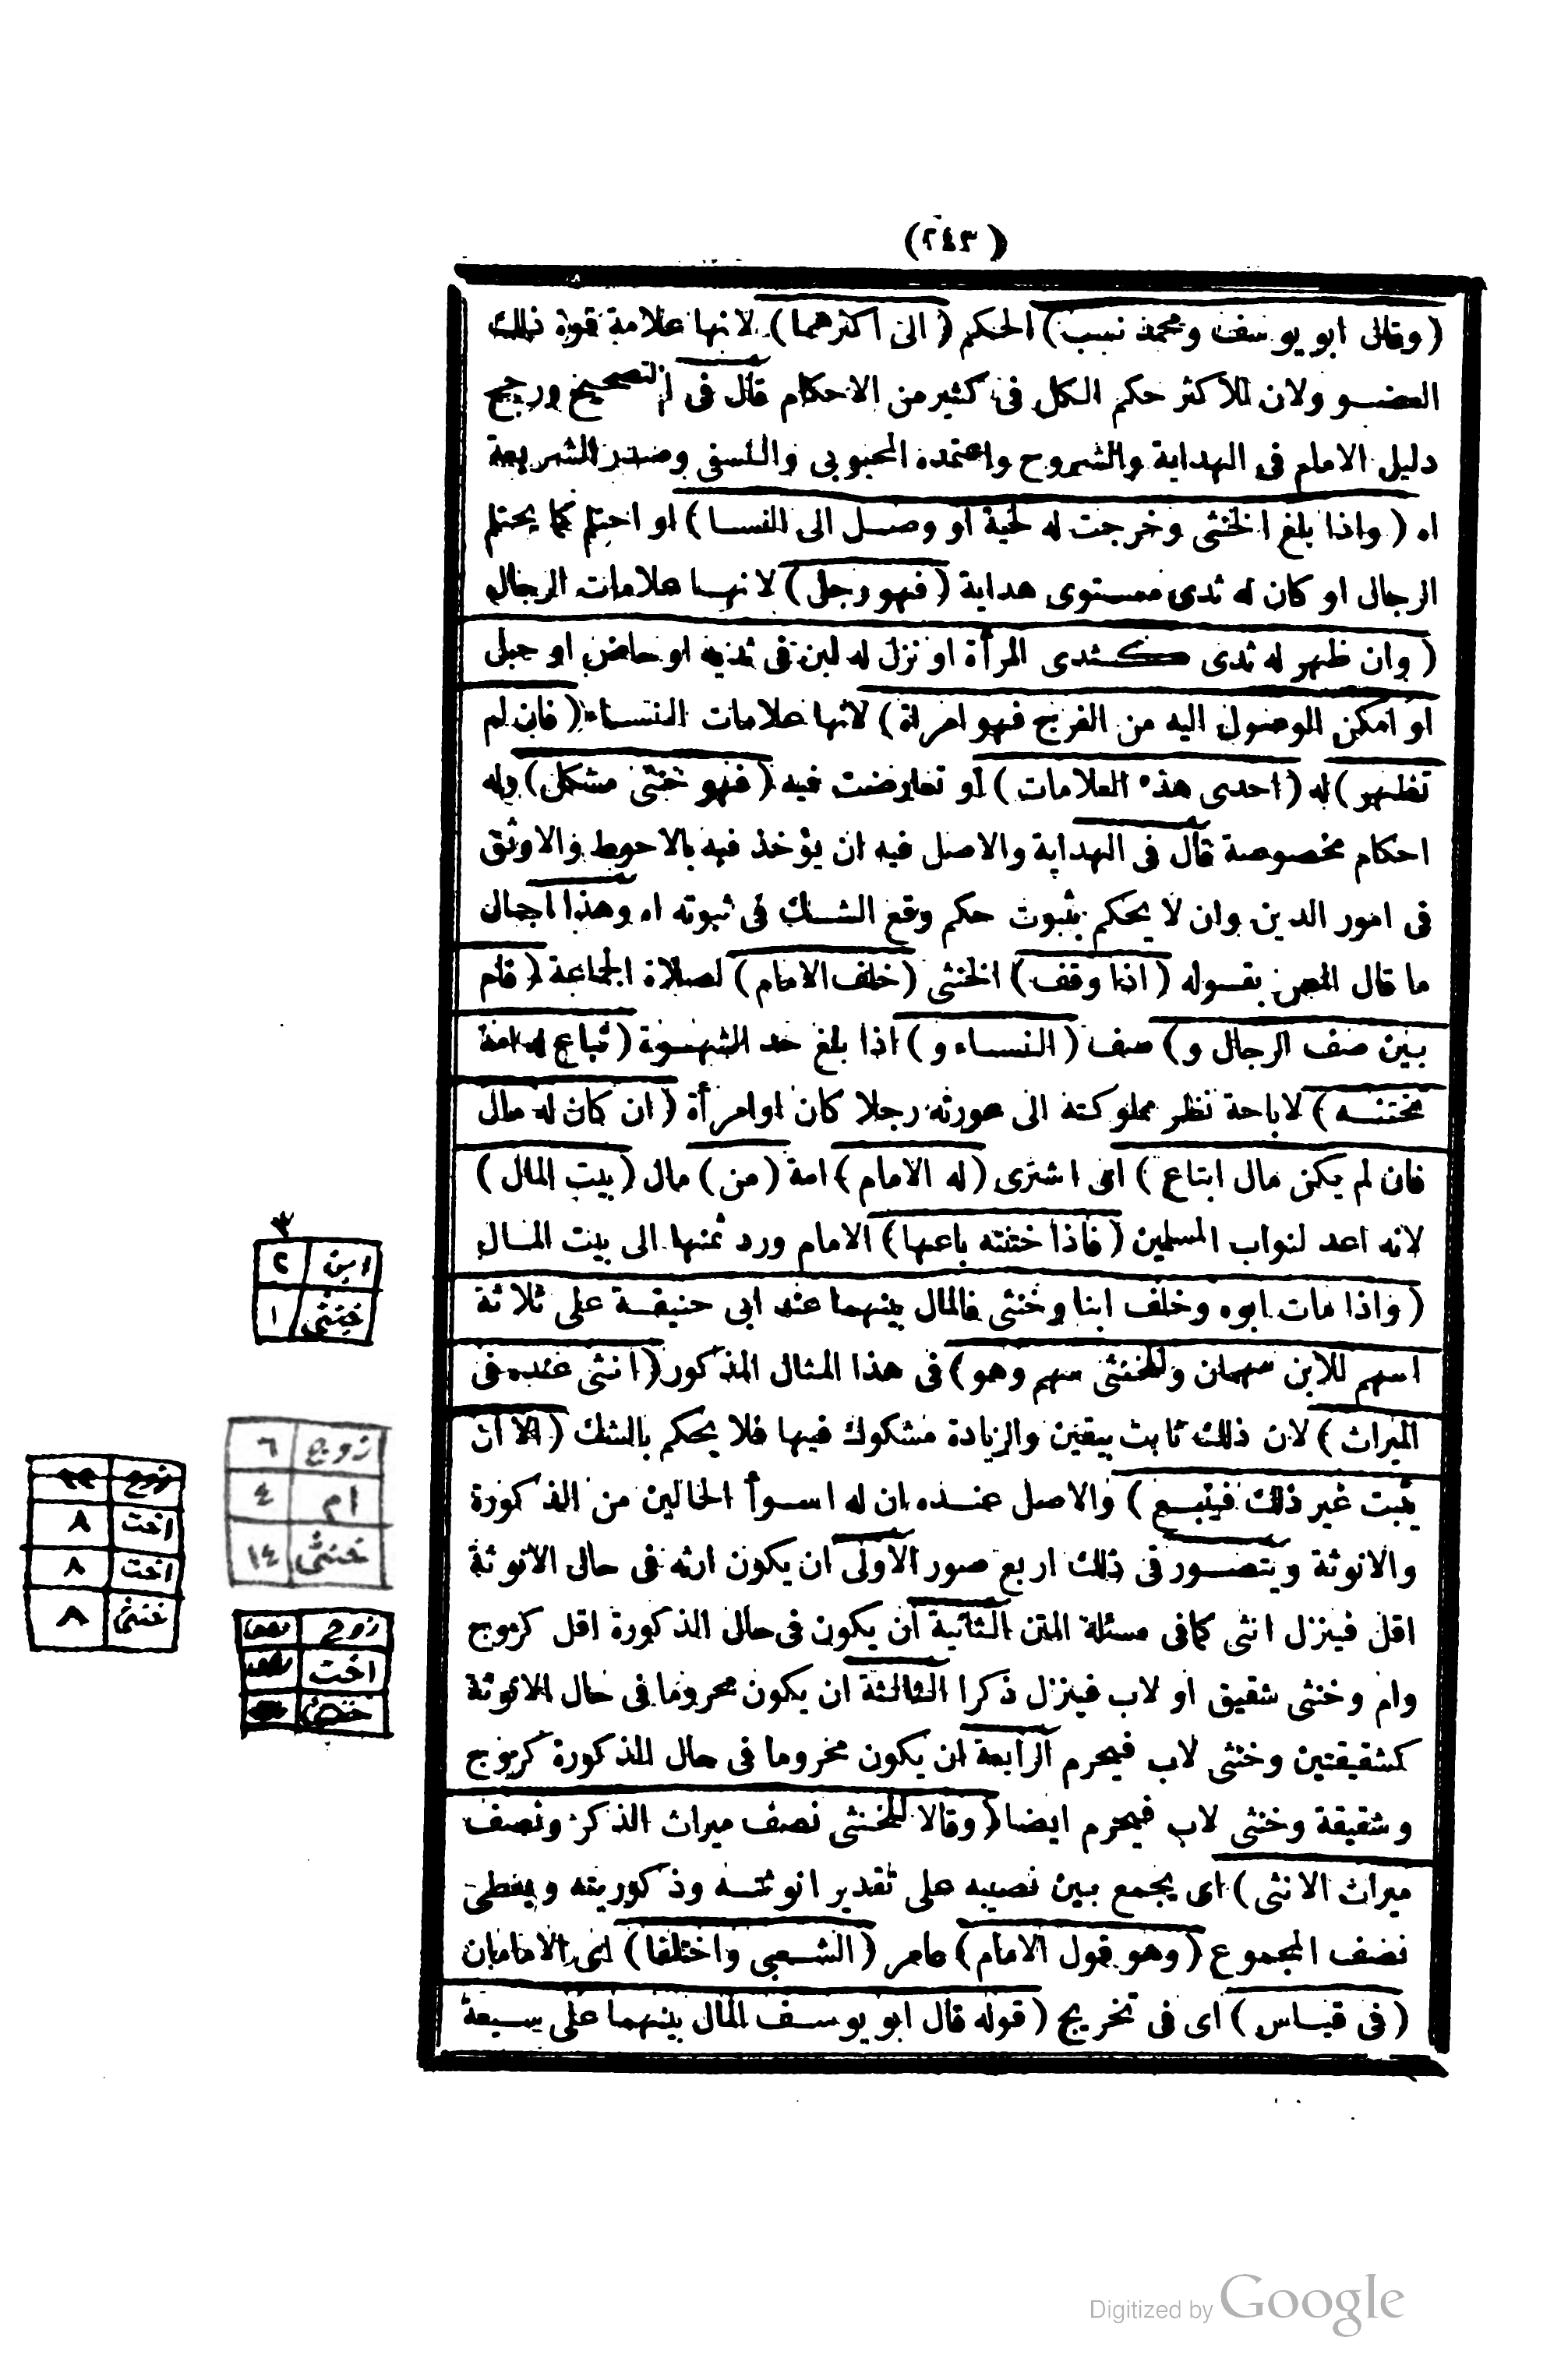 (٢٤٣)
(وقال ابو يوسف ومحمد نسب) الحكم (الى اكثرهما) لانها علامة قوة ذلك
العضو ولان للاكثر حكم الكل فى كثير من الاحكام قال فى التصحيح ورجح
دليل الامام فى الهداية والشروح واعتمده المحبوبى والنسفى وصدر الشريعة
اه (واذا بلغ الخنثى وخرجت له لحية او وصل الى النسا) او احتلم كما يحتلم
الرجال او كان له ثدى مستوى هداية (فهو رجل) لانها علامات الرجال
(وان ظهر له ثدى كثدى المرأة او نزل له لبن فى ثديه او حاض او حبل
او امكن الوصول اليه من الفرج فهو امراة) لانها علامات النساء (فان لم
تظهر) له (احدى هذه العلامات) او تعارضت فيه (فهو خنثى مشكل) وله
احكام مخصوصة قال فى الهداية والاصل فيه ان يؤخذ فيه بالاحوط والاوثق
فى امور الدين وان لا يحكم بثبوت حكم وقع الشك فى ثبوته اه وهذا اجمال
ما قال المص بقوله (اذا وقف) الخنثى (خلف الامام) لصلاة الجماعة (قام
بين صف الرجال و) صف (النساء و) اذا بلغ حد الشهوة (تباع له امة
تختنه) لاباحة نظر مملوكته الى عورته رجلا كان او امرأة (ان كان له مال
فان لم يكن مال ابتاع) اى اشترى (له الامام) امة (من) مال (بيت المال)
لانه اعد لنواب المسلمين (فاذا ختنته باعها) الامام ورد ثمنها الى بيت المال
(واذا مات ابوه وخلف ابنا وخنثى فالمال بينهما عند ابى حنيفة على ثلاثة
اسهم للابن سهمان وللخنثى سهم وهو) فى هذا المثال المذكور (انثى عنده فى
الميراث) لان ذلك ثابت بيقين والزيادة مشكوك فيها فلا يحكم بالشك (الا ان
يثبت غير ذلك فيتبع) والاصل عنده ان له اسوأ الحالين من الذكورة
والانوثة ويتصور فى ذلك اربع صور الاولى ان يكون ارثه فى حال الانوثة
اقل فينزل انثى كما فى مسئلة المتن الثانية ان يكون فى حال الذكورة اقل كزوج
وام وخنثى شقيق او لاب فينزل ذكرا الثالثة ان يكون محروما فى حال الانوثة
كشقيقتين وخنثى لاب فيحرم الرابعة ان يكون محروما فى حال الذكورة كزوج
وشقيقة وخنثى لاب فيحرم ايضا (وقالا للخنثى نصف ميراث الذكر ونصف
ميراث الانثى) اى يجمع بين نصيبه على تقدير انوثته وذكوريته ويعطى
نصف المجموع (وهو قول الامام) عامر (الشعبى واختلفا) اى الامامان
(فى قياس) اى فى تخريج (قوله قال ابو يوسف المال بينهما على سبعة
٣
ابن ٢
خنثى ١
زوج ٦
ام ٤
خنثى ١٤
زوج
اخت ٨
اخت ٨
خنثى ٨
زوج
اخت
خنثى
Digitized by Google